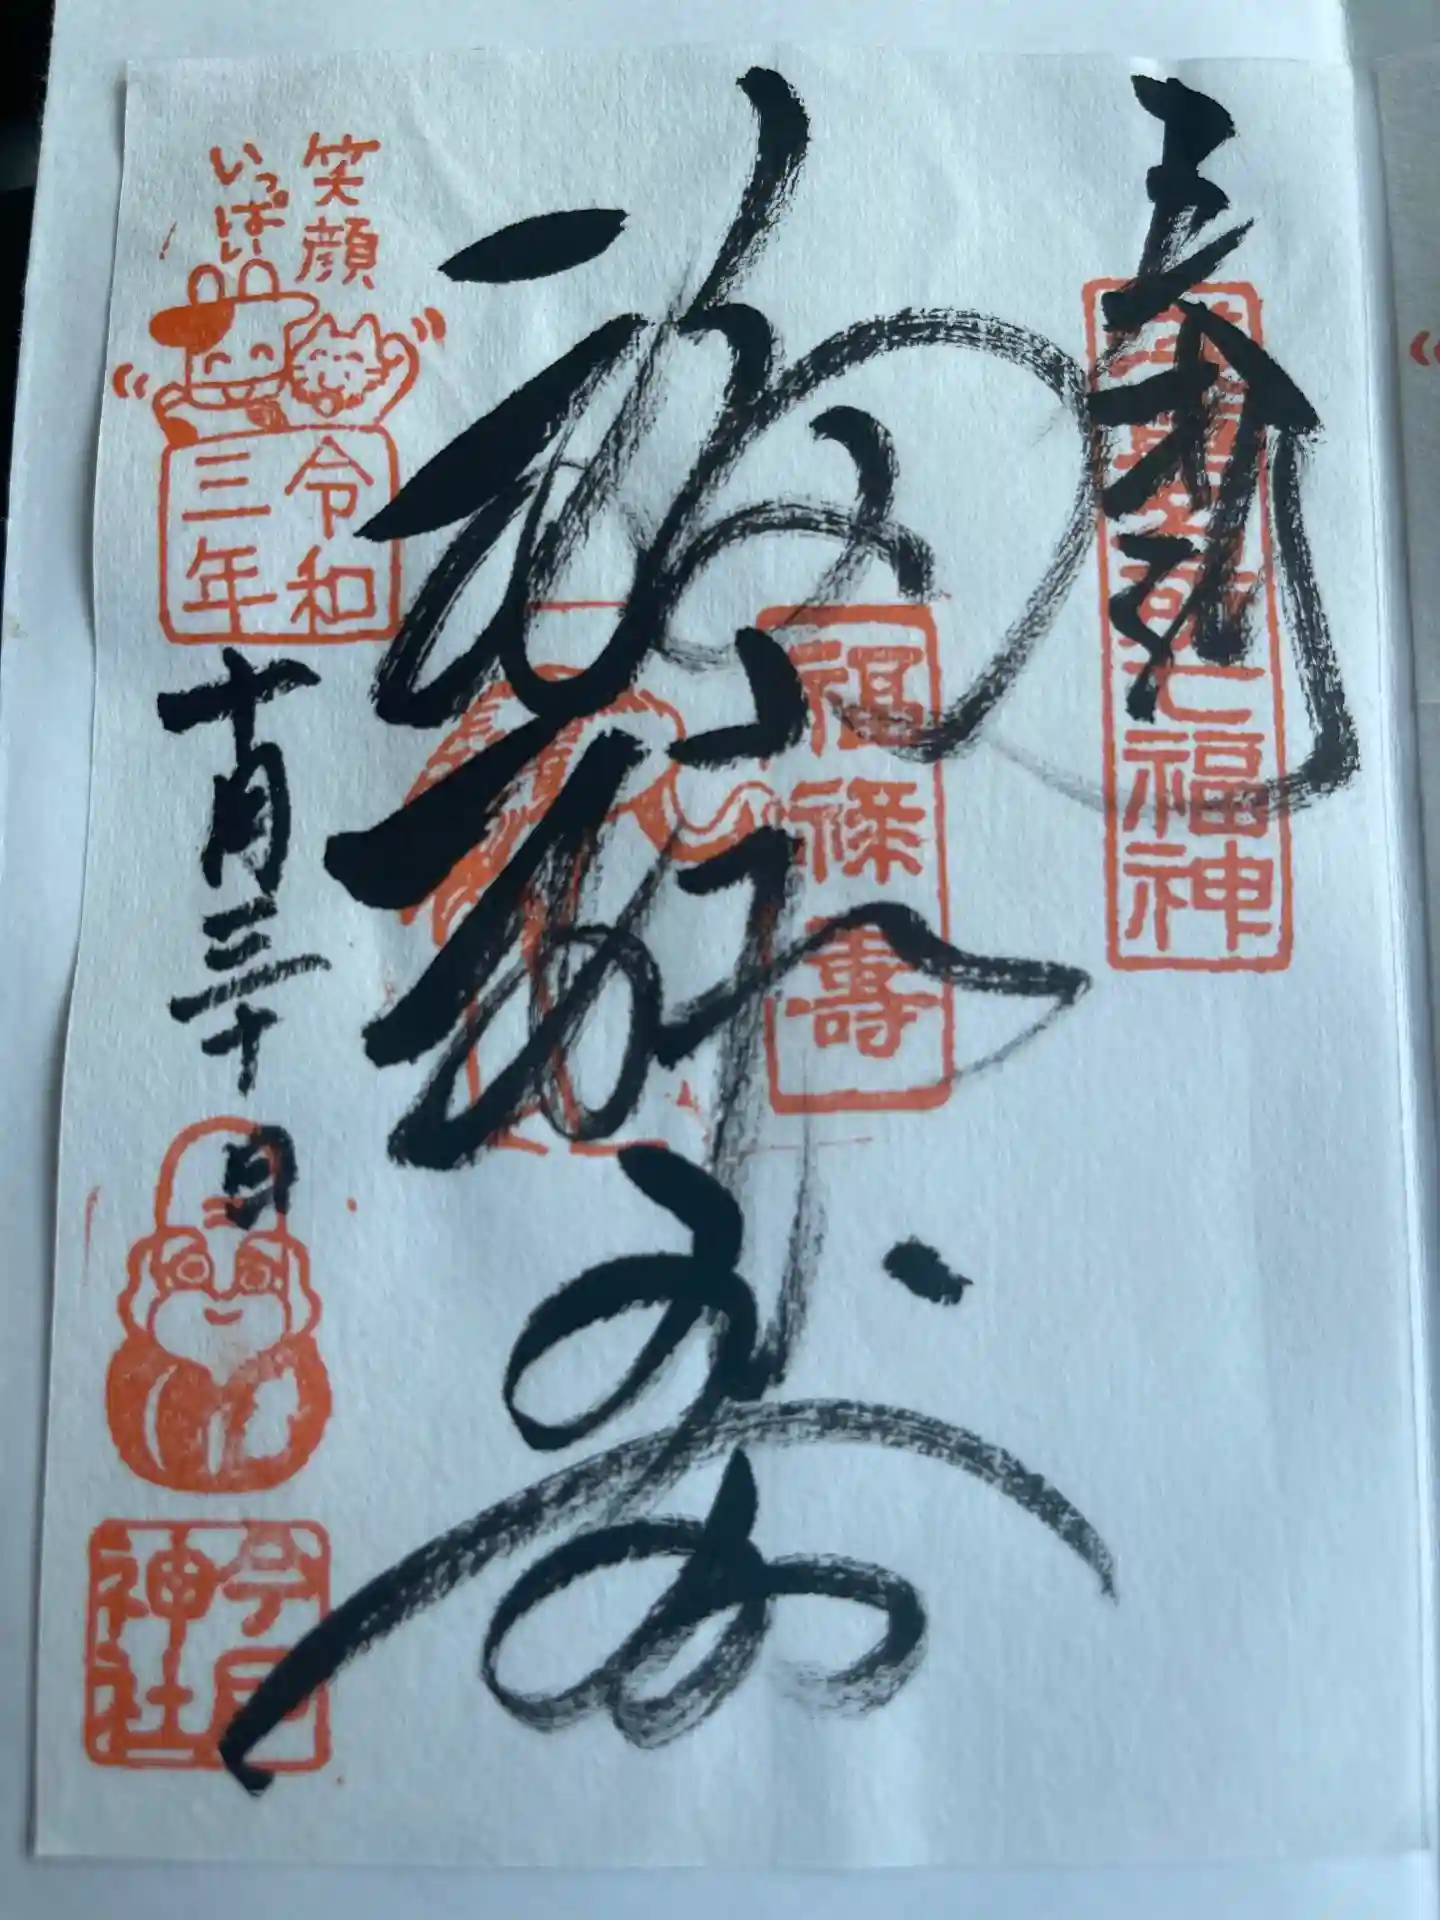 奉拝
七福神
福禄寿
福禄壽
笑顔
いっぱい
令和
三年
十月三十日
今戸
神社